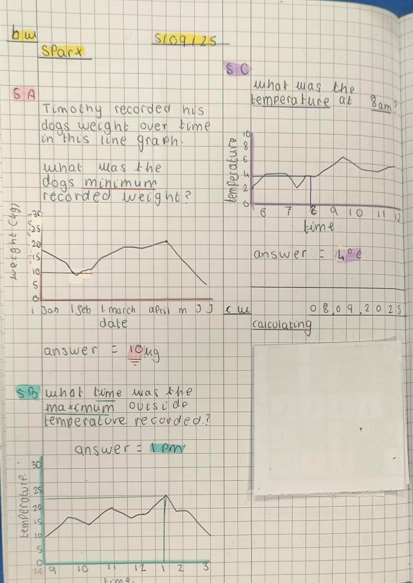 bw
Sparx
5/09/25
5A
Timothy recorded his
dogs weight over time
in this line graph.
what was the
dogs minimum
recorded weight?
weight (kg)
30
25
20
15
10
5
0
1 Jan 1 Feb 1 march april m J J
date
answer = 10kg
5B
what time was the
maximum outside
temperature recorded?
answer = 1pm
temperature
30
25
20
15
10
5
0
9 10 11 12 1 2 3
time
5C
what was the
temperature at 8am?
temperature
10
8
6
4
2
0
6 7 8 9 10 11 12
time
answer = 4°c
cw 08.09.2025
calculating